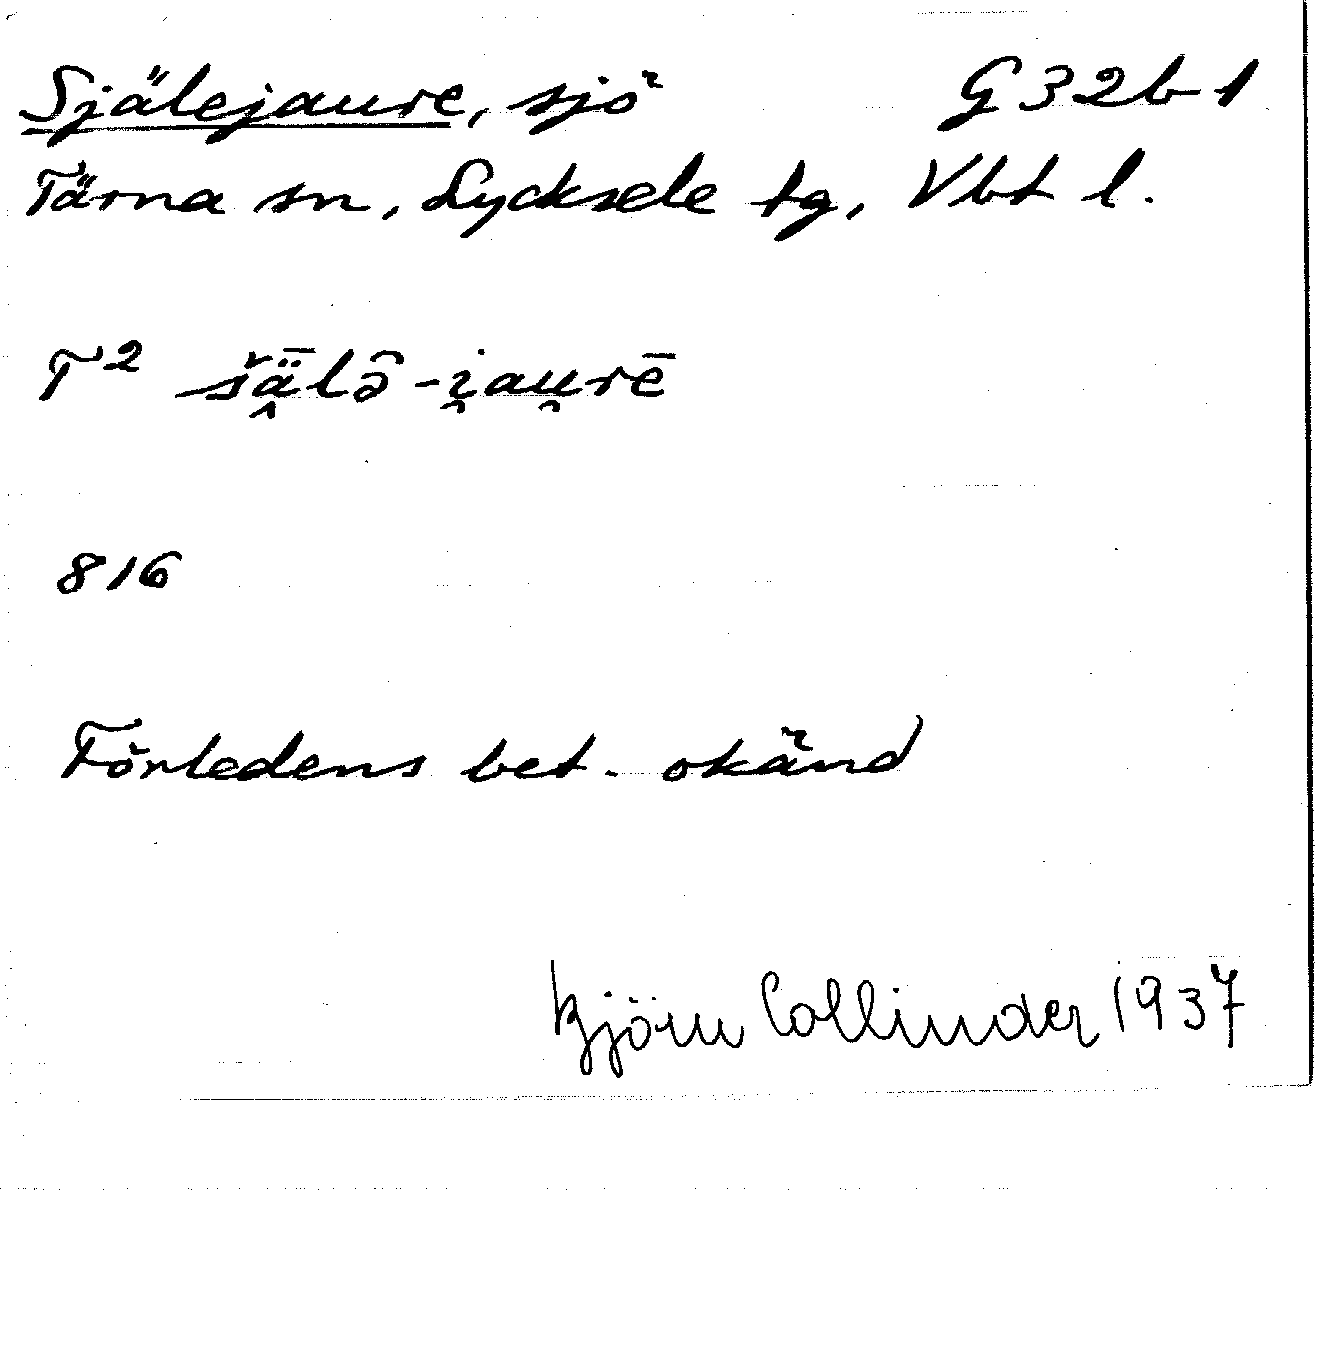 Själejaure, sjö G32b1
Tärna sn, Lycksele tg, Vbt l.
T² šǟ̭lə̑-i̯au̯rē
816
Förledens bet. okänd
Björn Collinder 1937